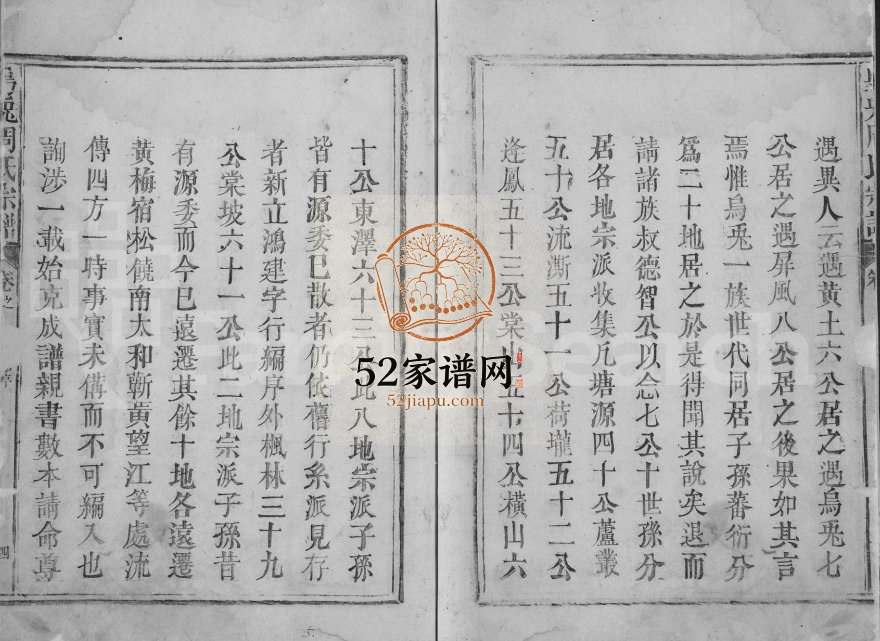 遇異人云遇黃土六公居之遇烏兎七
公居之遇屏風八公居之後果如其言
焉惟烏兎一族世代同居子孫蕃衍分
為二十地居之於是得聞其說矣退而
請諸族叔德智公以念七公十世孫分
居各地宗派收集凡塘源四十公蘆叢
五十公流澌五十一公荷壠五十二公
逢鳳五十三公棠山五十四公橫山六
十公東澤六十三公此八地宗派子孫
皆有源委巳散者仍依舊行糸派見行
者新立鴻建字行編序外楓林三十九
公棠坡六十一公此二地宗派子孫昔
有源委而今巳遠遷其餘十地各遠遷
黃梅宿松饒南太和蘄黃望江等處流
傳四方一時事實未備而不可編入也
詢涉一載始克成譜親書數本請命尊
烏兎周氏宗譜
卷之
序
四
52家谱网
52jiapu.com